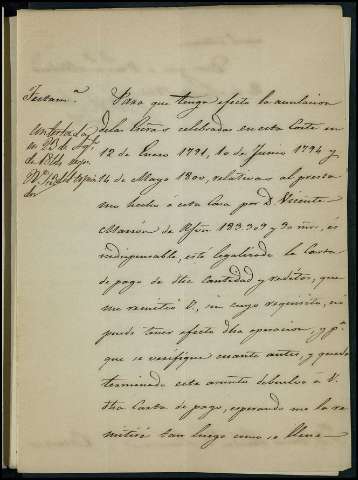 Testam.ª
Contestada
en 28 de Agt.
de 1844
Para que tenga efecto la anulacion
de las Escras celebradas en esta Corte en
12 de Enero 1791, 10 de Junio 1794 y
24 de Mayo 1800, relativas al presta
mo hecho á esta Casa por D. Vicente
de Rvn 193.309 y 30 mrs, es
indispensable, esté legalizada la Carta
de pago de dha cantidad y reditos, que
me remitió V., sin cuyo requisito, no
puede tener efecto dha operacion, y p.ª
que se verifique cuanto antes, y quede
terminado este asunto debuelvo á V.
dha Carta de pago, esperando me la
remitirá tan luego como se llene